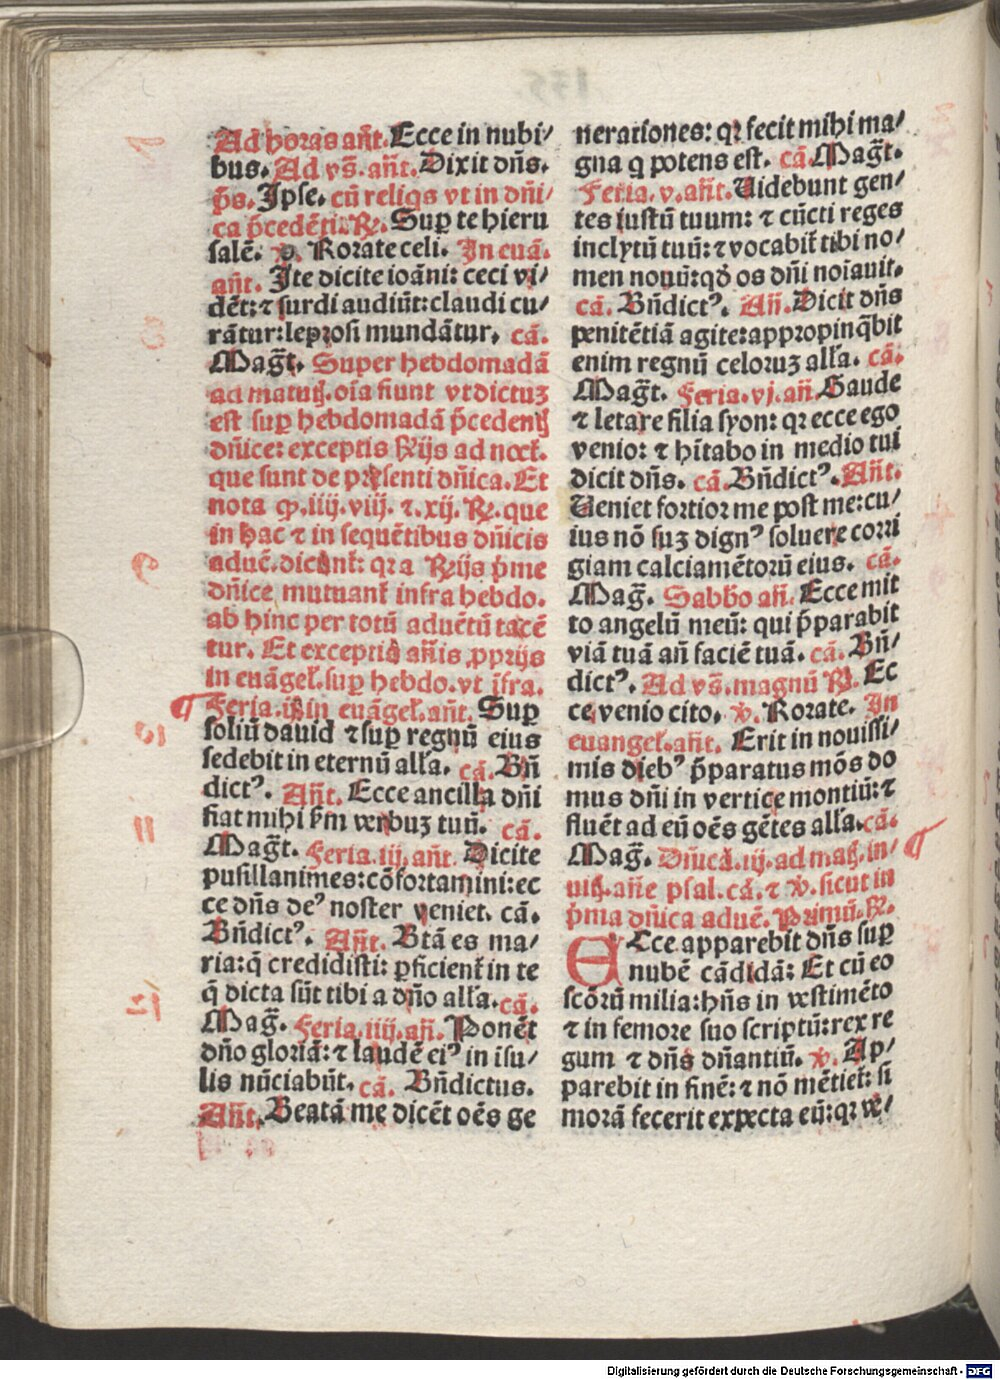 Ad horas añt. Ecce in nubi/
bus. Ad vs̄. añt. Dixit dñs.
p̄s. Ipse. cũ reliq̃s vt in dñi/
ca p̄cedẽti. ꝶ. Suꝑ te hieru
salẽ. ℣. Rorate celi. In euã.
añt. Ite dicite ioãni: ceci vi/
dẽt: ⁊ surdi audiũt: claudi cu/
rãtur: leprosi mundãtur. cã.
Mag̃t. Super hebdomadã
ad matuꝭ. oĩa fiunt vt dictuꝫ
est suꝑ hebdomadã p̄cedenꝭ
dñice: exceptis ꝶijs ad noct̃.
que sunt de presenti dñica. Et
nota ꝙ. iiij. viij. ⁊. xij. ꝶ. que
in hac ⁊ in sequẽtibus dñicis
aduẽ. dicũnt̃: qr a ꝶijs p̄me
dñice mutuant̃ infra hebdo.
ab hinc per totũ aduẽtũ tacẽ
tur. Et exceptis añis ꝓprijs
in euãgel̃. suꝑ hebdo. vt ĩfra.
¶ Feria. ij. in euãgel̃. añt. Suꝑ
soliũ dauid ⁊ suꝑ regnũ eius
sedebit in eternũ alla. cã. Bñ
dictꝰ. Añt. Ecce ancilla dñi
fiat mihi ẜm verbuꝫ tuũ. cã.
Mag̃t. Feria. iij. añt. Dicite
pusillanimes: cõfortamini: ec
ce dñs deꝰ noster veniet. cã.
Bñdictꝰ. Añt. Btã es ma/
ria: q̃ credidisti: ꝑficient̃ in te
q̃ dicta sũt tibi a dño alla. cã.
Mag̃. Feria. iiij. añ. Ponẽt
dño gloriã: ⁊ laudẽ eiꝰ in isu/
lis nũciabũt. cã. Bñdictus.
Añt. Beatã me dicẽt oẽs ge
nerationes: qr fecit mihi ma/
gna q potens est. cã. Mag̃t.
Feria. v. añt. Uidebunt gen/
tes iustũ tuum: ⁊ cũcti reges
inclytũ tuũ: ⁊ vocabit̃ tibi no/
men nouũ: qđ os dñi noĩauit.
cã. Bñdictꝰ. Añ. Dicit dñs
penitẽtiã agite: appropinq̃bit
enim regnũ celoruꝫ alla. cã.
Mag̃t. Feria. vj. añ. Gaude
⁊ letare filia syon: qr ecce ego
venio: ⁊ hĩtabo in medio tui
dicit dñs. cã. Bñdictꝰ. Añt.
Ueniet fortior me post me: cu/
ius nõ suꝫ dignꝰ soluere corri
giam calciamẽtorũ eius. cã.
Mag̃. Sabb̃o añ. Ecce mit
to angelũ meũ: qui p̄parabit
viã tuã añ faciẽ tuã. cã. Bñ/
dictꝰ. Ad vs̄. magnũ ꝶ. Ec
ce venio cito. ℣. Rorate. In
euangel̃. añt. Erit in nouissi/
mis diebꝰ p̄paratus mõs do
mus dñi in vertice montiũ: ⁊
fluẽt ad eũ oẽs gẽtes alla. cã.
Mag̃. Dñicã. iij. ad maꝭ. in/ ¶
uiꝭ. añe psal. cã. ⁊ ℣. sicut in
p̄ma dñica aduẽ. Primũ. ꝶ.
ECce apparebit dñs suꝑ
nubẽ cãdidã: Et cũ eo
scõrũ milia: hñs in vestimẽto
⁊ in femore suo scriptũ: rex re
gum ⁊ dñs dñantiũ. ℣. Ap/
parebit in finẽ: ⁊ nõ mẽtiet̃: si
morã fecerit expecta eũ: qr ve/
Digitalisierung gefördert durch die Deutsche Forschungsgemeinschaft - DFG